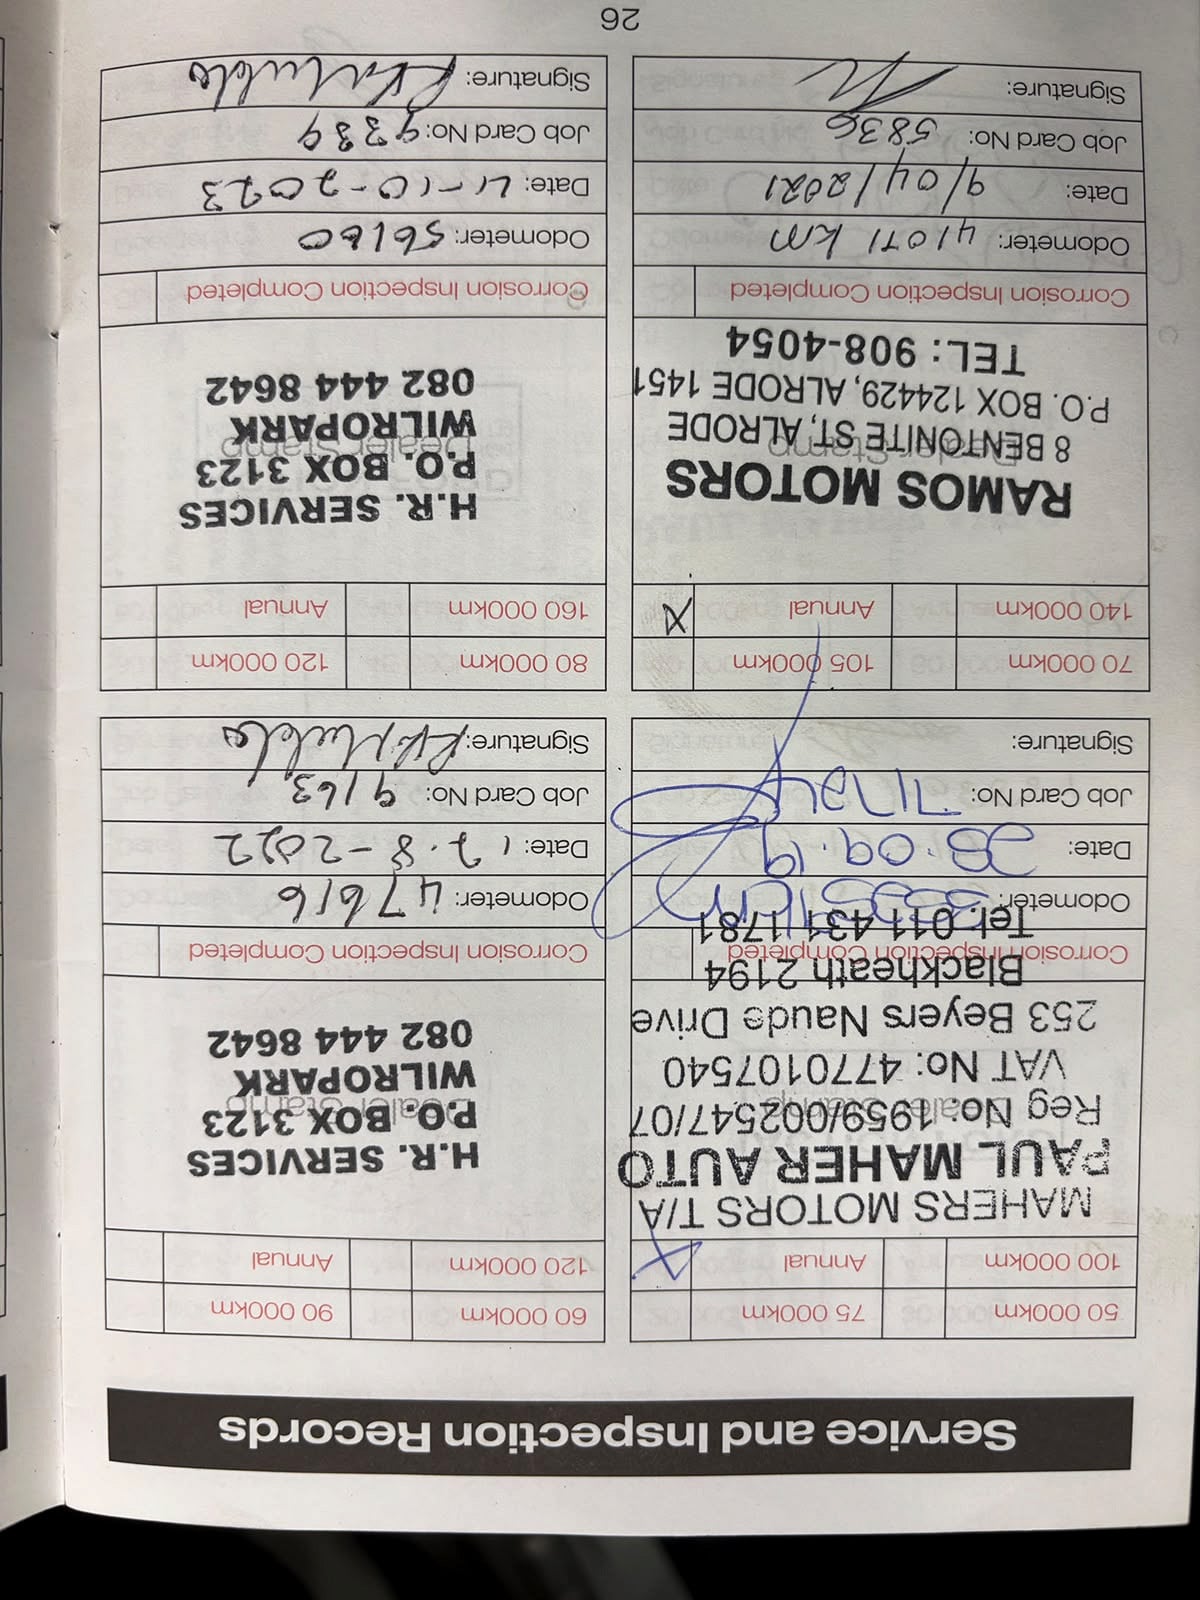 Service and Inspection Records
50 000km 75 000km
100 000km Annual X
MAHERS MOTORS T/A
PAUL MAHER AUTO
Reg No: 1959/002547/07
Dealer Stamp
VAT No: 4770107540
253 Beyers Naude Drive
Blackheath 2194
Corrosion Inspection Completed
Tel: 011 431 1781
Odometer:
Date: 28.09.19
Job Card No: 71724
Signature:
60 000km 90 000km
120 000km Annual
H.R. SERVICES
P.O. BOX 3123
Dealer Stamp
WILROPARK
082 444 8642
Corrosion Inspection Completed
Odometer: 47616
Date: 17.8-2022
Job Card No: 9163
Signature:
70 000km 105 000km
140 000km Annual X
RAMOS MOTORS
Dealer Stamp
8 BENTONITE ST, ALRODE
P.O. BOX 124429, ALRODE 1451
TEL: 908-4054
Corrosion Inspection Completed
Odometer: 41071 km
Date: 9/04/2021
Job Card No: 5836
Signature:
80 000km 120 000km
160 000km Annual
H.R. SERVICES
P.O. BOX 3123
Dealer Stamp
WILROPARK
082 444 8642
Corrosion Inspection Completed
Odometer: 56160
Date: 4-10-2023
Job Card No: 9339
Signature:
26